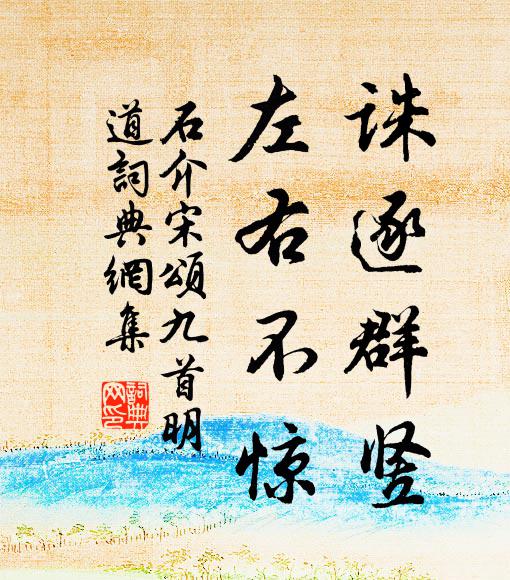 诛逐群竖
左右不惊
石介宋頌九首明
道詞典網集
詞典
网印